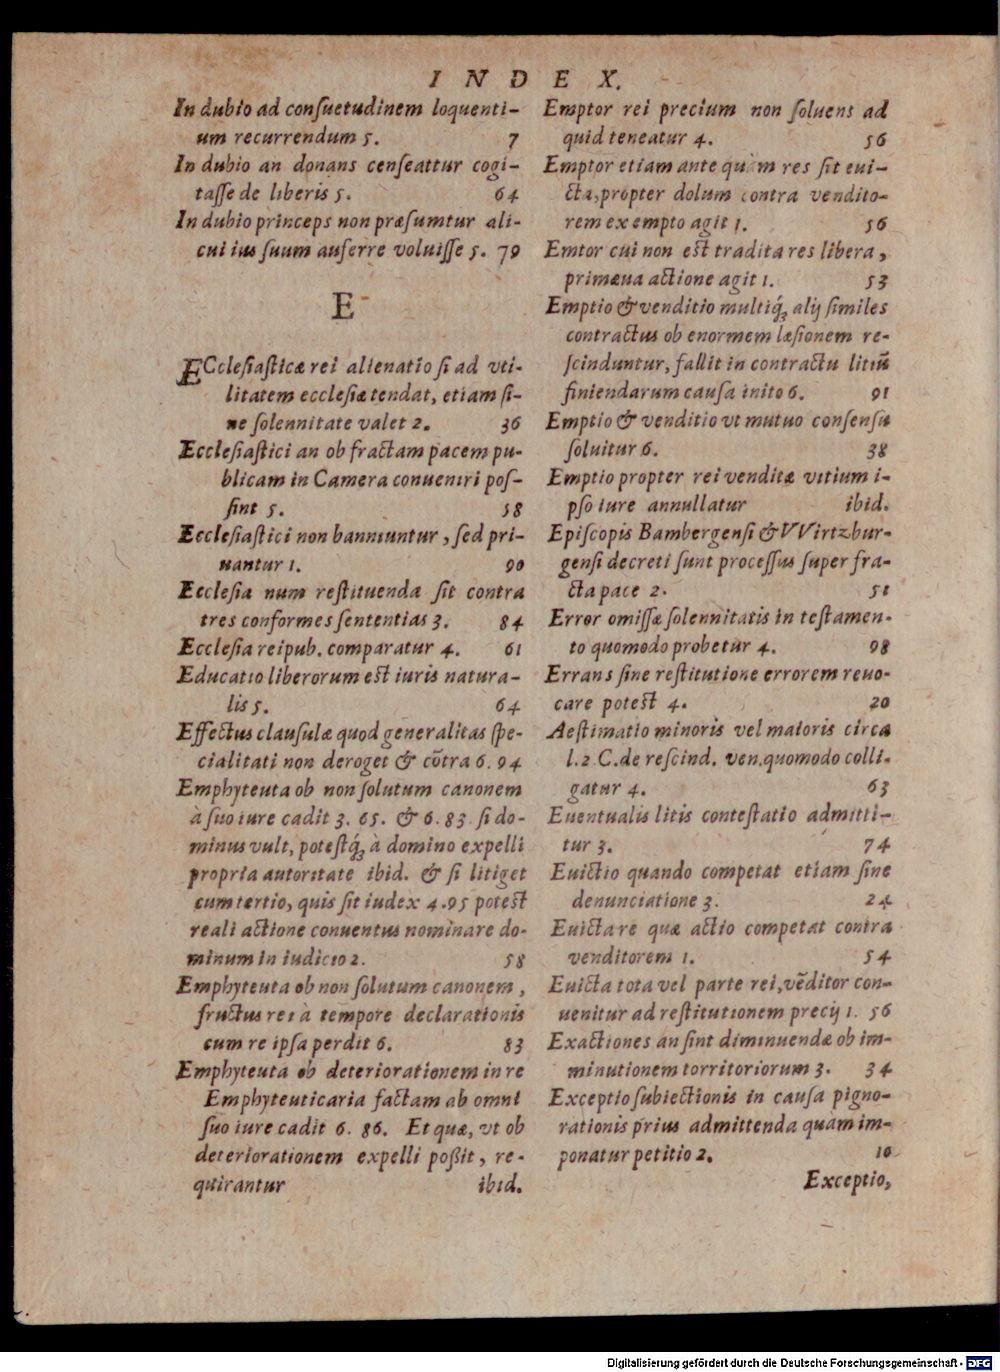 INDEX.
In dubio ad conſuetudinem loquenti-
um recurrendum 5. 7
In dubio an donans cenſeattur cogi-
taſſe de liberis 5. 64
In dubio princeps non præſumtur ali-
cui ius ſuum auferre voluiſſe 5. 79
E
ECcleſiaſticæ rei alienatio ſi ad vti-
litatem eccleſiæ tendat, etiam ſi-
ne ſolennitate valet 2. 36
Eccleſiaſtici an ob fractam pacem pu-
blicam in Camera conueniri poſ-
ſint 5. 58
Eccleſiaſtici non banniuntur, ſed pri-
uantur 1. 90
Eccleſia num reſtituenda ſit contra
tres conformes ſententias 3. 84
Eccleſia reipub. comparatur 4. 61
Educatio liberorum est iuris natura-
lis 5. 64
Effectus clauſulæ quod generalitas ſpe-
cialitati non deroget & cõtra 6. 94
Emphyteuta ob non ſolutum canonem
à ſuo iure cadit 3. 65. & 6. 83. ſi do-
minus vult, poteſtq́; à domino expelli
propria autoritate ibid. & ſi litiget
cum tertio, quis ſit iudex 4. 95 potest
reali actione conuentus nominare do-
minum in iudicio 2. 58
Emphyteuta ob non ſolutum canonem,
fructus rei à tempore declarationis
cum re ipſa perdit 6. 83
Emphyteuta ob deteriorationem in re
Emphyteuticaria factam ab omni
ſuo iure cadit 6. 86. Et quæ, vt ob
deteriorationem expelli poßit, re-
quirantur ibid.
Emptor rei precium non ſoluens ad
quid teneatur 4. 56
Emptor etiam ante quàm res ſit eui-
cta, propter dolum contra vendito-
rem ex empto agit 1. 56
Emtor cui non est tradita res libera,
primæua actione agit 1. 53
Emptio & venditio multiq́; alij ſimiles
contractus ob enormem læſionem re-
ſcinduntur, fallit in contractu litiũ
finiendarum cauſa inito 6. 91
Emptio & venditio vt mutuo conſenſu
ſoluitur 6. 38
Emptio propter rei venditæ vitium i-
pſo iure annullatur ibid.
Epiſcopis Bambergenſi & VVirtzbur-
genſi decreti ſunt proceſſus ſuper fra-
cta pace 2. 51
Error omiſſæ ſolennitatis in teſtamen-
to quomodo probetur 4. 98
Errans ſine reſtitutione errorem reuo-
care potest 4. 20
Aeſtimatio minoris vel maioris circa
l. 2 C. de reſcind. ven. quomodo colli-
gatur 4. 63
Euentualis litis conteſtatio admitti-
tur 3. 74
Euictio quando competat etiam ſine
denunciatione 3. 24
Euicta re quæ actio competat contra
venditorem 1. 54
Euicta tota vel parte rei, vẽditor con-
uenitur ad reſtitutionem precij 1. 56
Exactiones an ſint diminuendæ ob im-
minutionem torritoriorum 3. 34
Exceptio ſubiectionis in cauſa pigno-
rationis prius admittenda quam im-
ponatur petitio 2. 10
Exceptio,
Digitalisierung gefördert durch die Deutsche Forschungsgemeinschaft - DFG